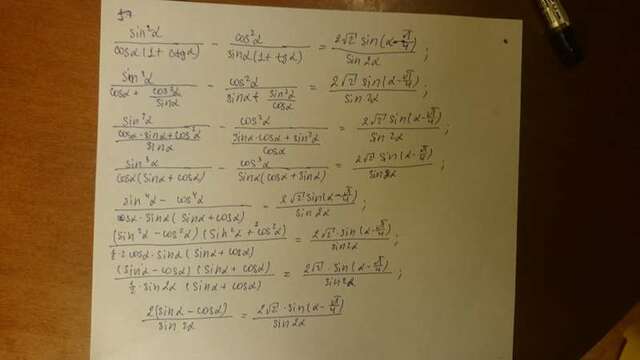 sin²α / (cosα(1 + ctgα)) − cos²α / (sinα(1 + tgα)) = 2√2 sin(α − π/4) / sin2α ;
sin²α / (cosα + cos²α/sinα) − cos²α / (sinα + sin²α/cosα) = 2√2 sin(α − π/4) / sin2α ;
sin²α / ((cosα·sinα + cos²α)/sinα) − cos²α / ((sinα·cosα + sin²α)/cosα) = 2√2 sin(α − π/4) / sin2α ;
sin³α / (cosα(sinα + cosα)) − cos³α / (sinα(cosα + sinα)) = 2√2 sin(α − π/4) / sin2α ;
(sin⁴α − cos⁴α) / (cosα·sinα(sinα + cosα)) = 2√2 sin(α − π/4) / sin2α ;
(sin²α − cos²α)(sin²α + cos²α) / (½·2cosα sinα(sinα + cosα)) = 2√2 sin(α − π/4) / sin2α ;
(sinα − cosα)(sinα + cosα) / (½ sin2α (sinα + cosα)) = 2√2 · sin(α − π/4) / sin2α ;
2(sinα − cosα) / sin2α = 2√2 · sin(α − π/4) / sin2α